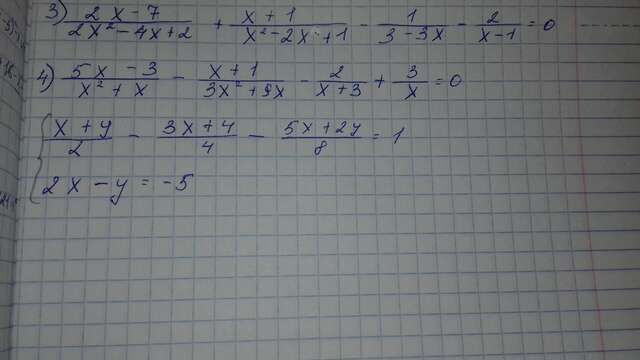 3) (2x - 7)/(2x² - 4x + 2) + (x + 1)/(x² - 2x + 1) - 1/(3 - 3x) - 2/(x - 1) = 0
4) (5x - 3)/(x² + x) - (x + 1)/(3x² + 9x) - 2/(x + 3) + 3/x = 0
{ (x + y)/2 - (3x + 4)/4 - (5x + 2y)/8 = 1
2x - y = -5